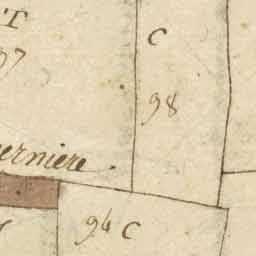 T
C
97
98
erniere
94 C